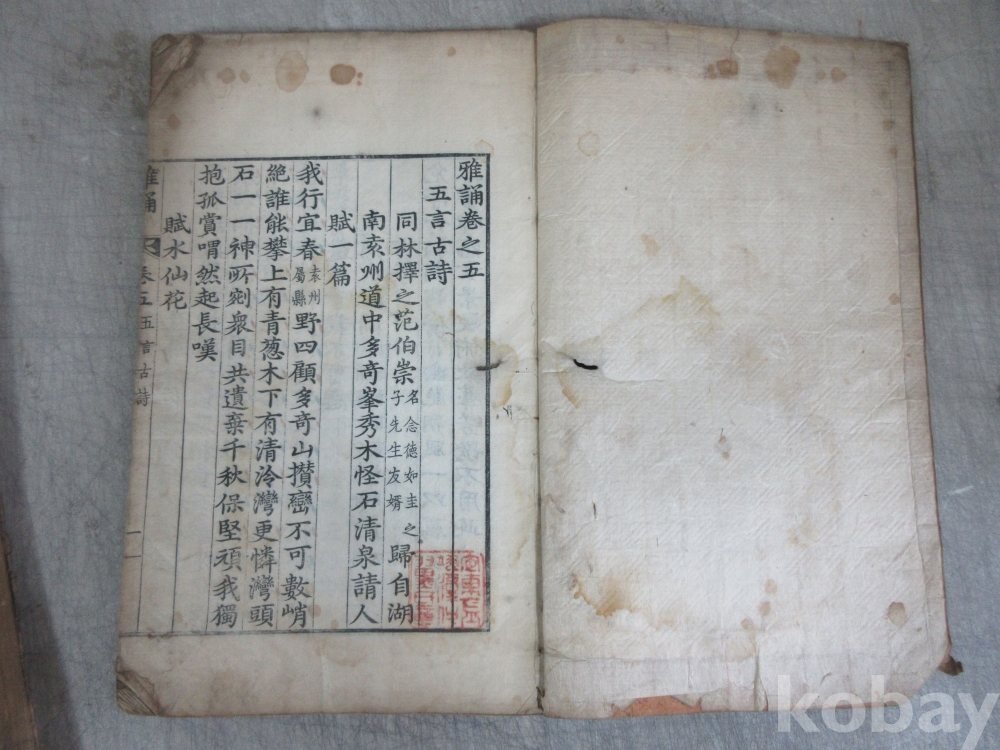 雅誦卷之五
五言古詩
同林擇之范伯崇名念德如圭之子先生友婿歸自湖
南袁州道中多奇峯秀木怪石清泉請人
賦一篇
我行宜春袁州屬縣野四顧多奇山攅巒不可數峭
絶誰能攀上有青葱木下有清泠灣更憐灣頭
石一一神所剜衆目共遺棄千秋保堅頑我獨
抱孤賞喟然起長嘆
賦水仙花
雅誦 卷五 五言古詩 一
kobay